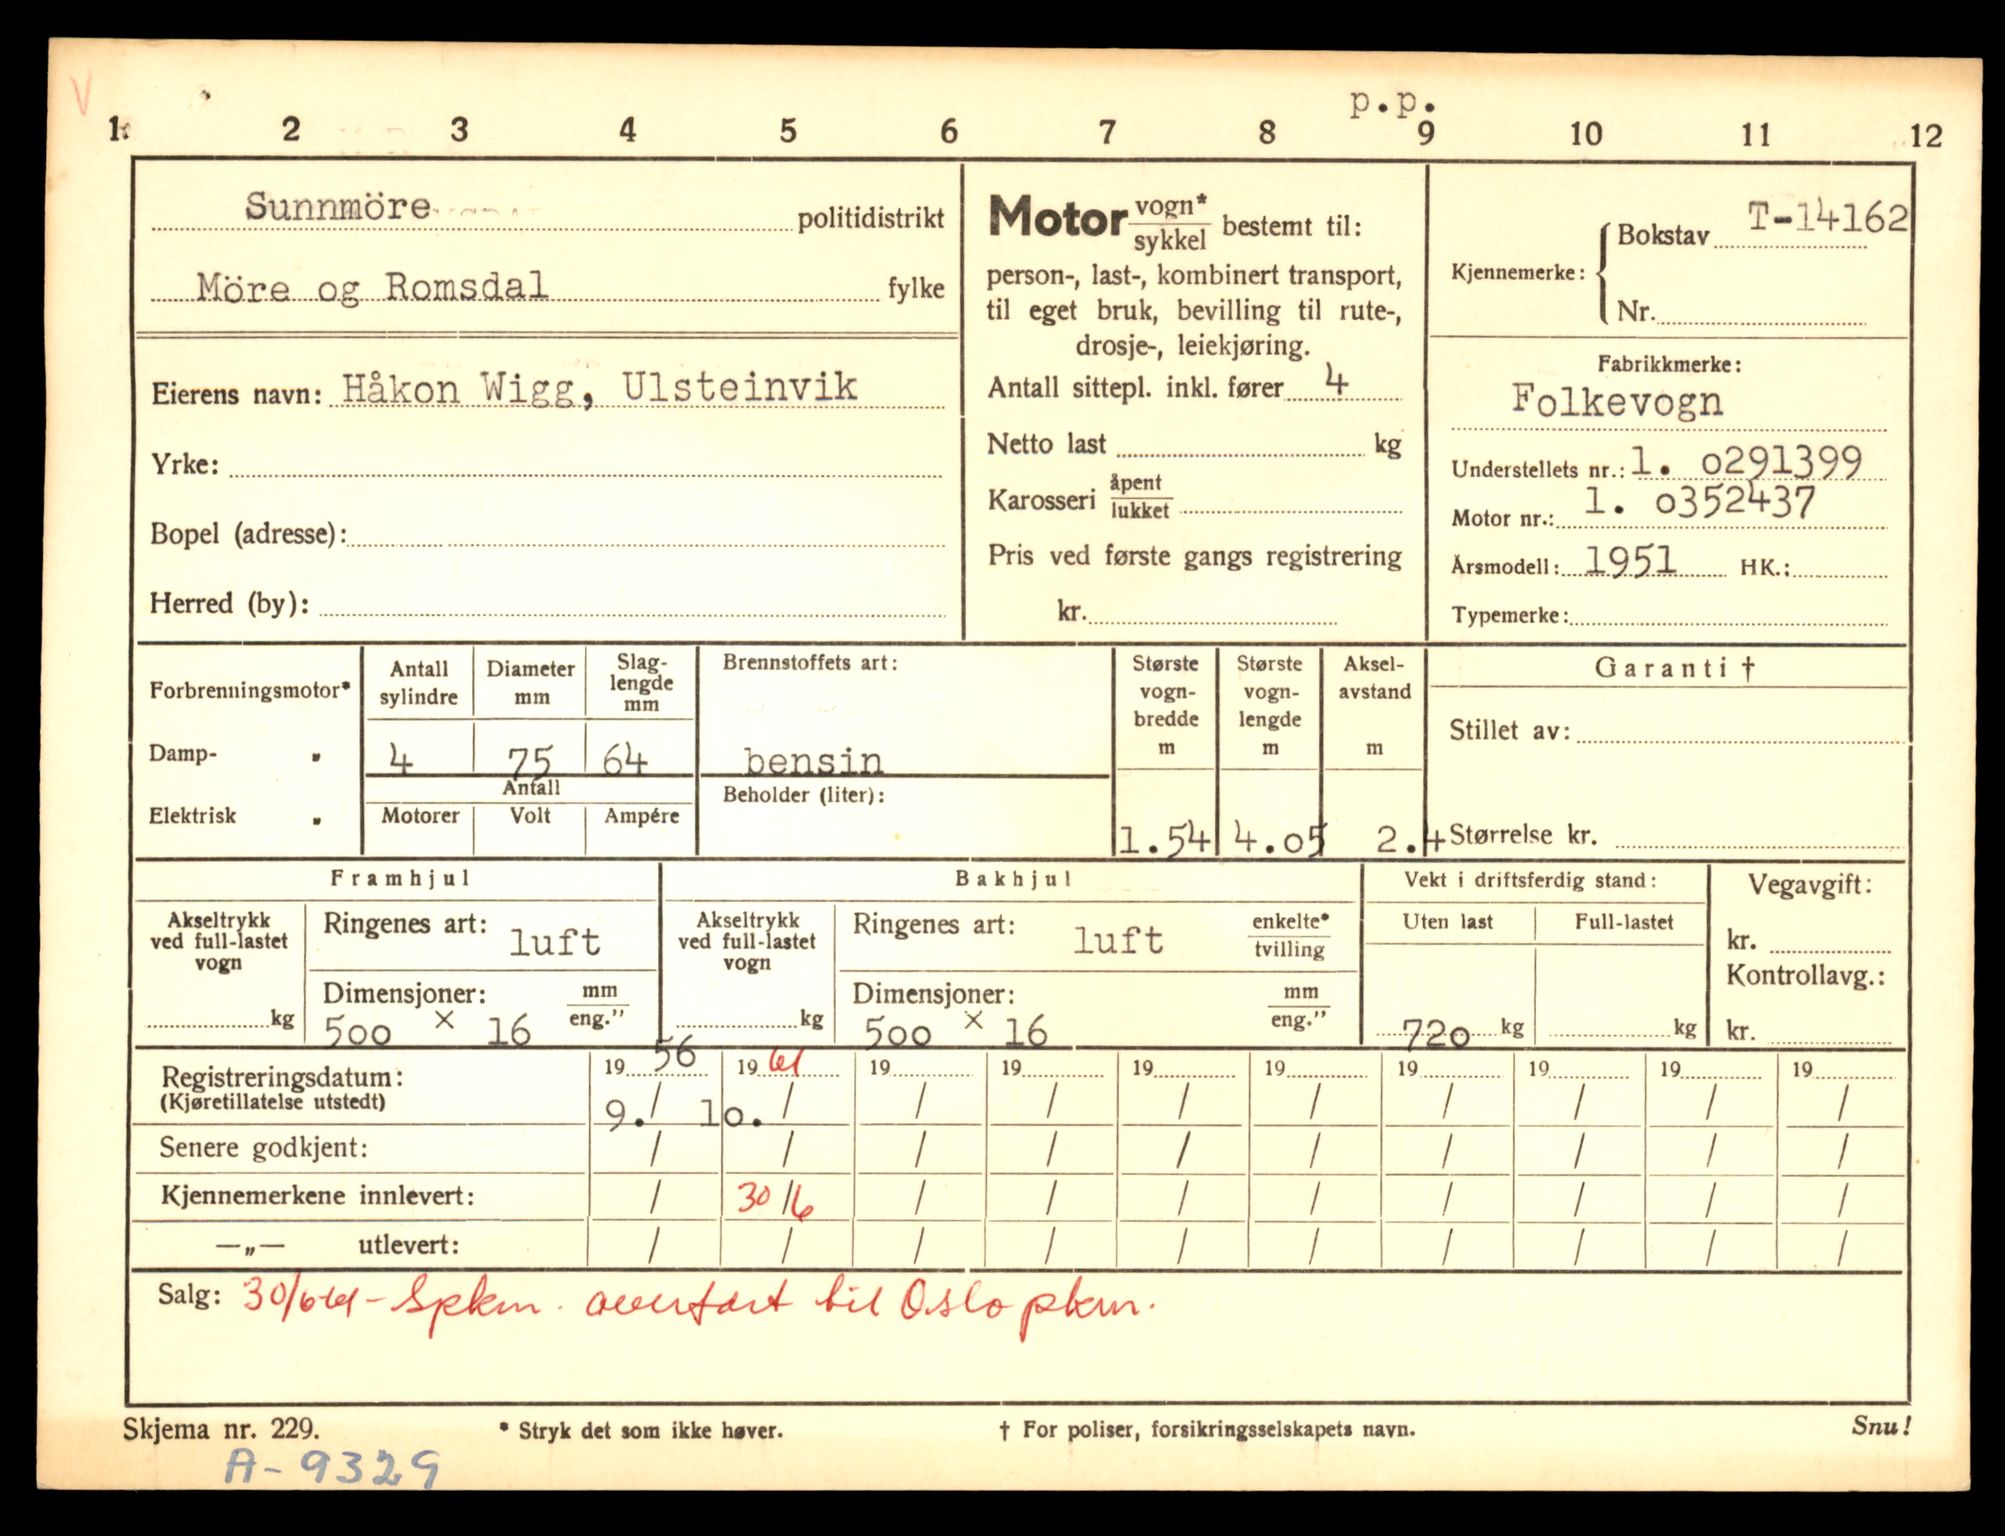 V
p.p.
1 2 3 4 5 6 7 8 9 10 11 12
Sunnmöre politidistrikt
Möre og Romsdal fylke
Eierens navn: Håkon Wigg, Ulsteinvik
Yrke:
Bopel (adresse):
Herred (by):
Motor vogn* / sykkel bestemt til:
person-, last-, kombinert transport,
til eget bruk, bevilling til rute-,
drosje-, leiekjøring.
Antall sittepl. inkl. fører 4
Netto last kg
Karosseri åpent / lukket
Pris ved første gangs registrering
kr.
Kjennemerke: Bokstav T-14162
Nr.
Fabrikkmerke:
Folkevogn
Understellets nr.: 1. 0291399
Motor nr.: 1. 0352437
Årsmodell: 1951 HK.:
Typemerke:
Forbrenningsmotor*
Damp- "
Elektrisk "
Antall sylindre Diameter mm Slag-lengde mm
4 75 64
Antall
Motorer Volt Ampére
Brennstoffets art:
bensin
Beholder (liter):
Største vogn-bredde m Største vogn-lengde m Aksel-avstand m
1.54 4.05 2.4
Garanti †
Stillet av:
Størrelse kr.
Framhjul
Akseltrykk ved full-lastet vogn
kg
Ringenes art: luft
Dimensjoner: mm / eng."
500 × 16
Bakhjul
Akseltrykk ved full-lastet vogn
kg
Ringenes art: luft enkelte* / tvilling
Dimensjoner: mm / eng."
500 × 16
Vekt i driftsferdig stand:
Uten last Full-lastet
720 kg kg
Vegavgift:
kr.
Kontrollavg.:
kr.
19 56 19 61 19 19 19 19 19 19 19 19
Registreringsdatum: 9. / 10. / / / / / / / / /
(Kjøretillatelse utstedt)
Senere godkjent: / / / / / / / / / /
Kjennemerkene innlevert: / 30/6 / / / / / / / /
—„— utlevert: / / / / / / / / / /
Salg: 30/6-61 - Spkm. overført til Oslo pkm.
Skjema nr. 229. * Stryk det som ikke høver. † For poliser, forsikringsselskapets navn. Snu!
A-9329